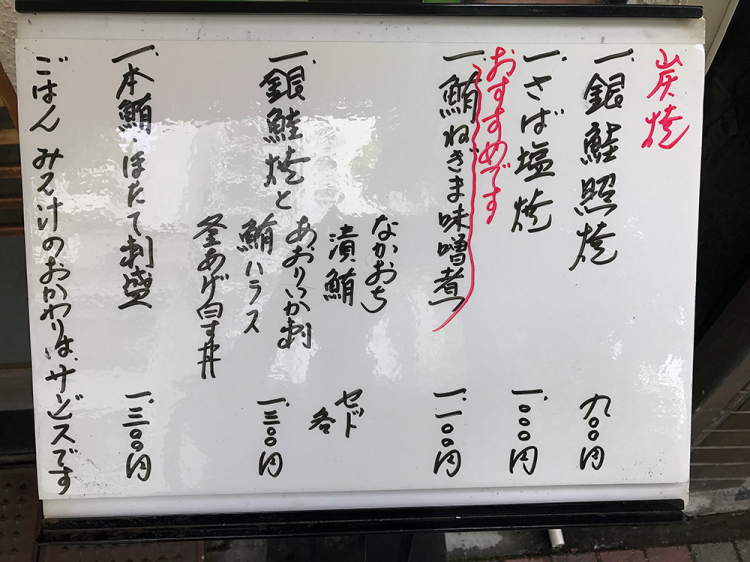 炭焼
一、銀鮭照焼 九〇〇円
一、さば塩焼 一、〇〇〇円
おすすめです
一、鮪ねぎま味噌煮 一、一〇〇円
なかおち
漬鮪
一、銀鮭焼と あおりいか刺 セット各 一、三〇〇円
鮪ハラス
釜あげ白す丼
一、本鮪・ほたて刺盛 一、三〇〇円
ごはん みそ汁のおかわりは、サービスです